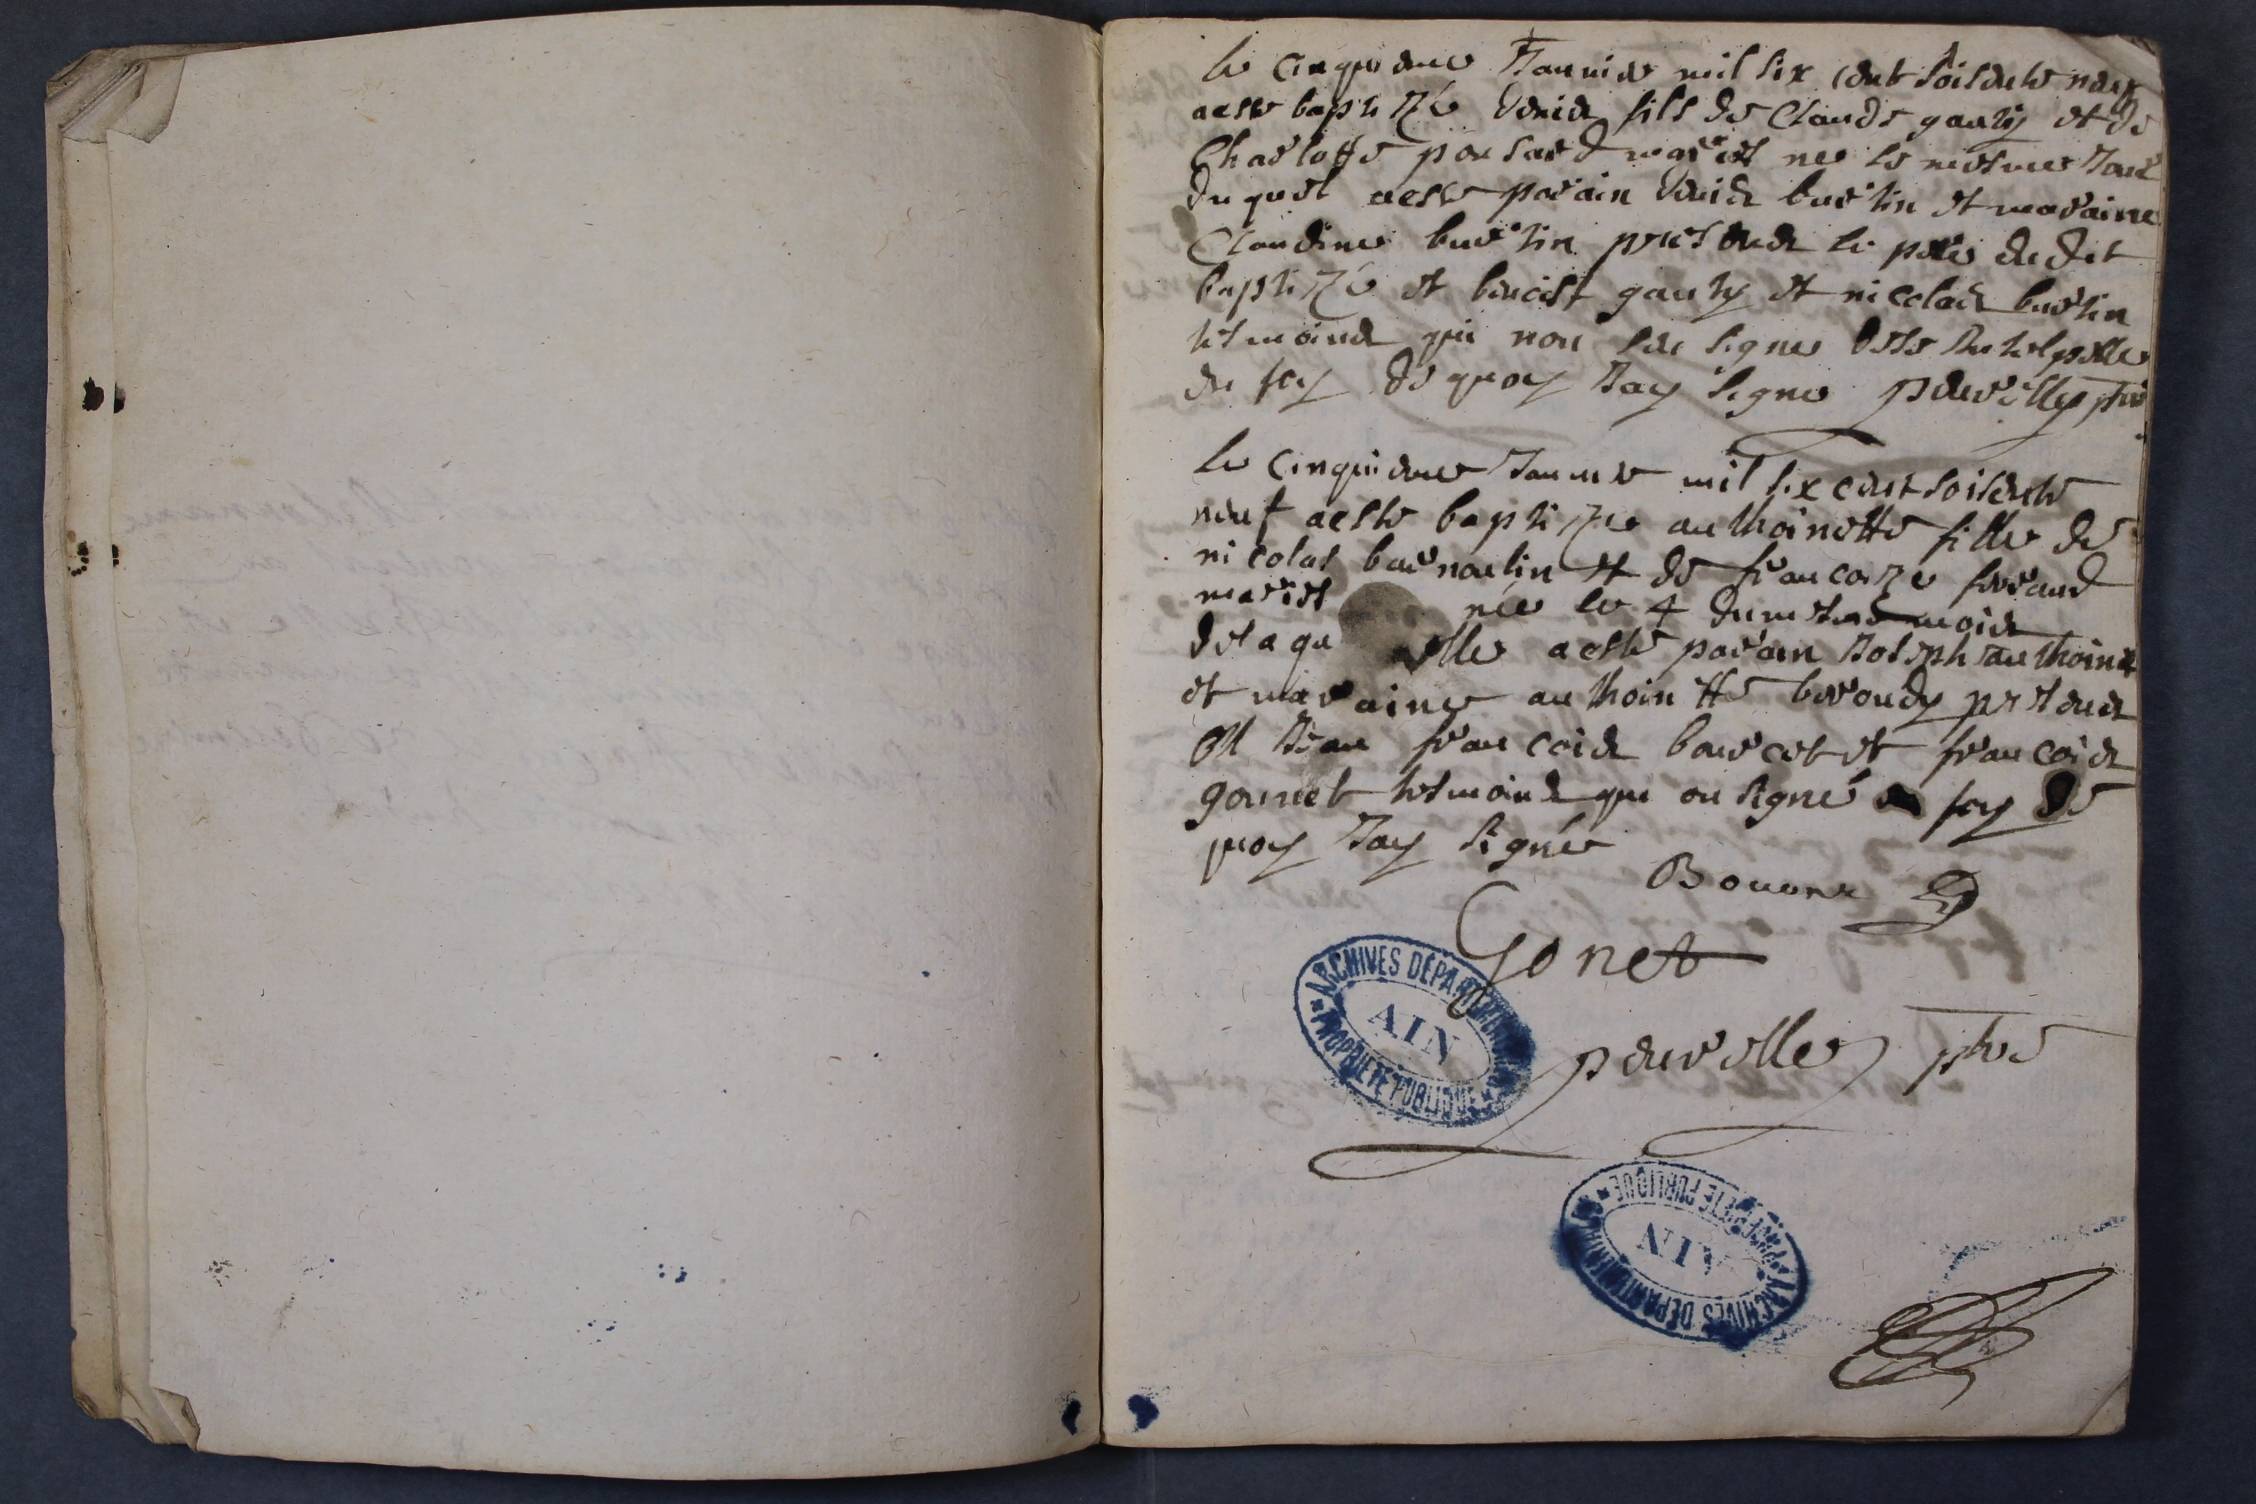 le cinquieme Janvier mil six cent soisente neuf
a este baptizé denis fils de Claude gauty et de
Charlotte ponsard mariés nee le mesme Jour
duquel a este parain denis burtin et maraine
Claudine burtin presens le pere dudit
baptizé et benoist gauty et nicolas burtin
tesmoins qui non sceu signe
en foy de quoy Jay signe pervilley ptre
le cinquieme Janvier mil six cent soisente
neuf a este baptizee anthoinette fille de
nicolas bournantin et de francoize ferrand
mariés née le 4 du mesme moies
de laquelle a este parain Joseph anthoine
et maraine anthoinette beroudy presens
et Jean francois bourcet et francois
gonnet tesmoins qui on signé en foy de
quoy Jay signée
Gonet
pervilley ptre
ARCHIVES DÉPARTEMENTALES
AIN
PROPRIÉTÉ PUBLIQUE
ARCHIVES DÉPARTEMENTALES
AIN
PROPRIÉTÉ PUBLIQUE